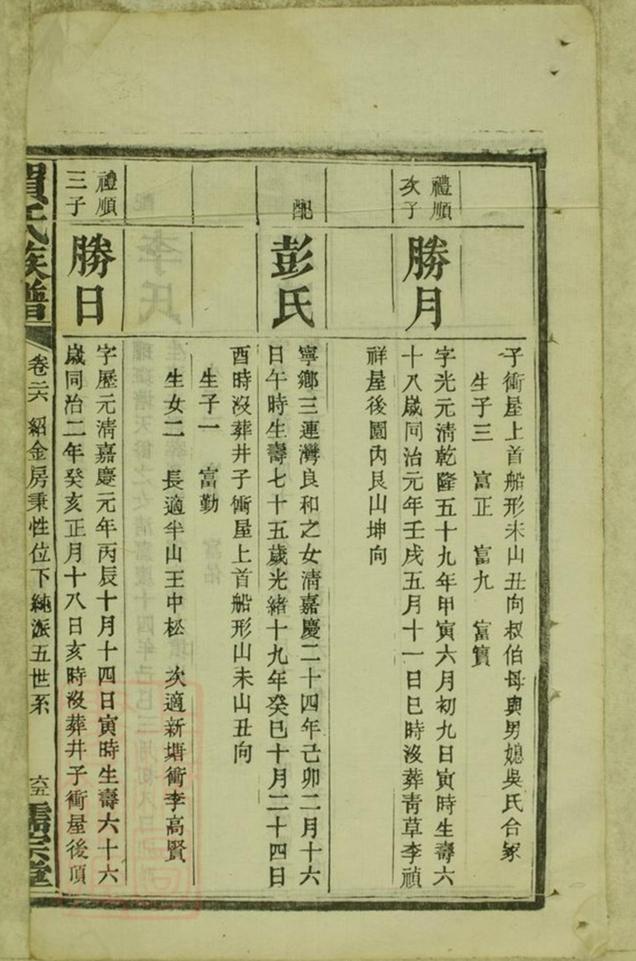 子衝屋上首船形未山丑向叔伯母與男媳吳氏合冢
生子三 富正 富九 富寶
禮順
次子
勝月
字光元清乾隆五十九年甲寅六月初九日寅時生壽六
十八歲同治元年壬戌五月十一日巳時沒葬青草李禎
祥屋後園內艮山坤向
配
彭氏
寧鄉三連灣良和之女清嘉慶二十四年己卯二月十六
日午時生壽七十五歲光緒十九年癸巳十月二十四日
酉時沒葬井子衝屋上首船形山未山丑向
生子一 富勤
生女二 長適半山王中松 次適新塘衝李高賢
禮順
三子
勝日
字歷元清嘉慶元年丙辰十月十四日寅時生壽六十六
歲同治二年癸亥正月十八日亥時沒葬井子衝屋後頂
氏族譜
卷二六 紹金房秉性位下純派五世系
六五
儒宗堂